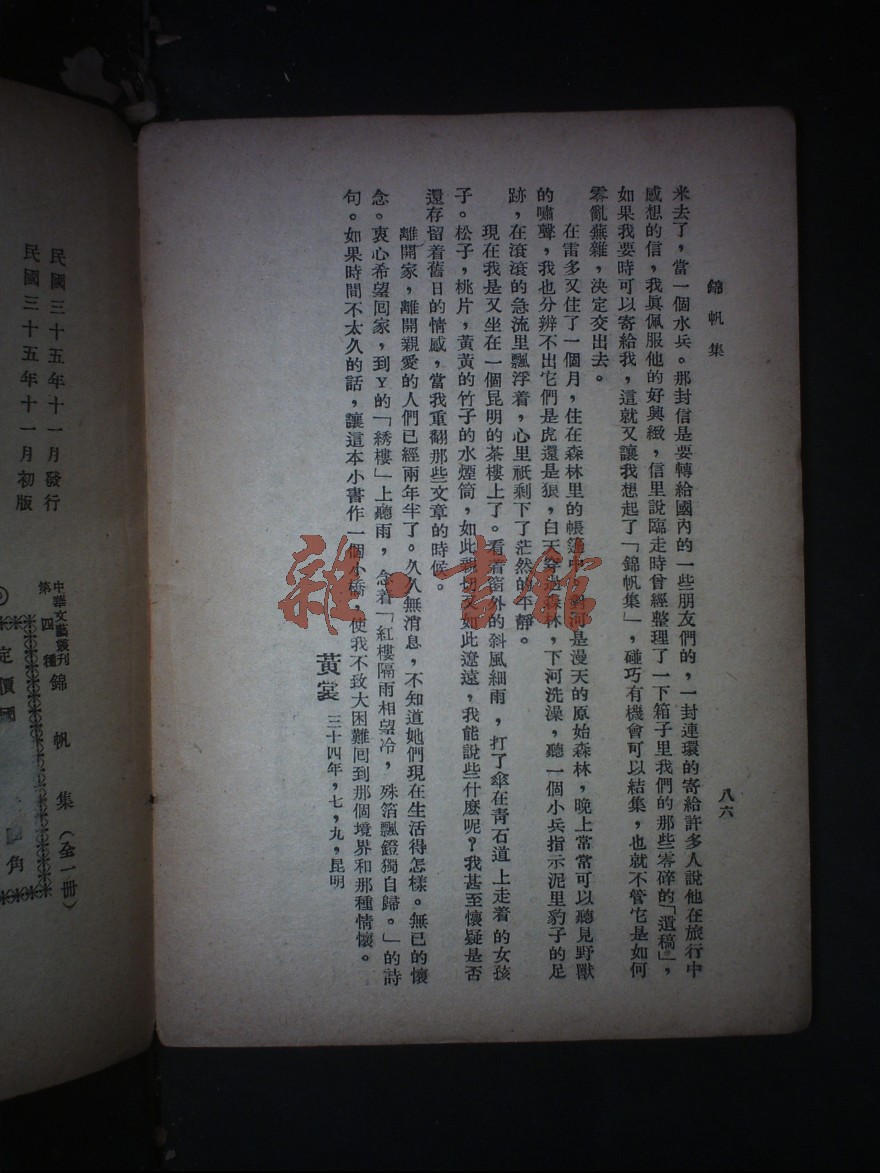 錦帆集
八六
米去了，當一個水兵。那封信是要轉給國內的一些朋友們的，一封連環的寄給許多人說他在旅行中
感想的信，我眞佩服他的好興緻，信里說臨走時曾經整理了一下箱子里我們的那些零碎的「遺稿」，
如果我要時可以寄給我，這就又讓我想起了「錦帆集」，碰巧有機會可以結集，也就不管它是如何
零亂蕪雜，決定交出去。
在雷多又住了一個月，住在森林里的帳篷中，對河是漫天的原始森林，晚上常常可以聽見野獸
的嘯聲，我也分辨不出它們是虎還是狼，白天穿過森林，下河洗澡，聽一個小兵指示泥里豹子的足
跡，在滾滾的急流里飄浮着，心里祇剩下了茫然的平靜。
現在我是又坐在一個昆明的茶樓上了。看着窗外的斜風細雨，打了傘在靑石道上走着的女孩
子。松子，桃片，黃黃的竹子的水煙筒，如此親切又如此遼遠，我能說些什麼呢？我甚至懷疑是否
還存留着舊日的情感，當我重翻那些文章的時候。
離開家，離開親愛的人們已經兩年半了。久久無消息，不知道她們現在生活得怎樣。無已的懷
念。衷心希望回家，到Y的「綉樓」上聽雨，念着「紅樓隔雨相望冷，殊箔飄鐙獨自歸。」的詩
句。如果時間不太久的話，讓這本小書作一個小橋，使我不致大困難回到那個境界和那種情懷。
黃裳 三十四年，七，九，昆明
雜·書館
民國三十五年十一月發行
民國三十五年十一月初版
中華文藝叢刊
第四種
錦帆集（全一冊）
定價國
角